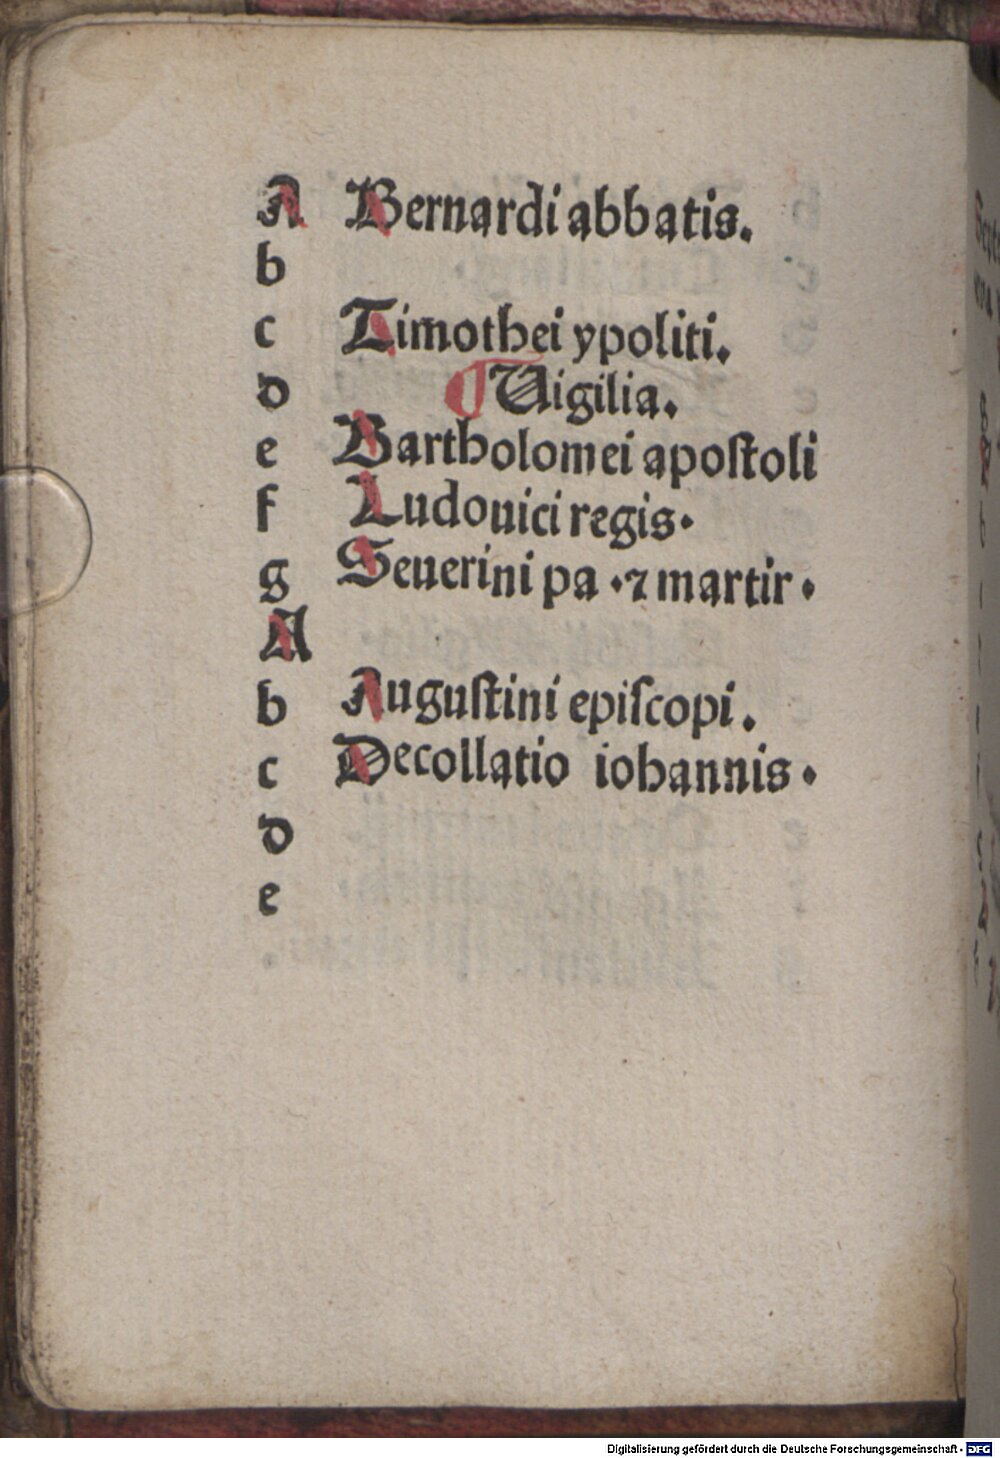 A Bernardi abbatis.
b
c Timothei ypoliti.
d ¶ Uigilia.
e Bartholomei apoſtoli
f Ludouici regis·
g Seuerini pa ·⁊ martir·
A
b Auguſtini epiſcopi.
c Decollatio iohannis·
d
e
Digitalisierung gefördert durch die Deutsche Forschungsgemeinschaft - DFG